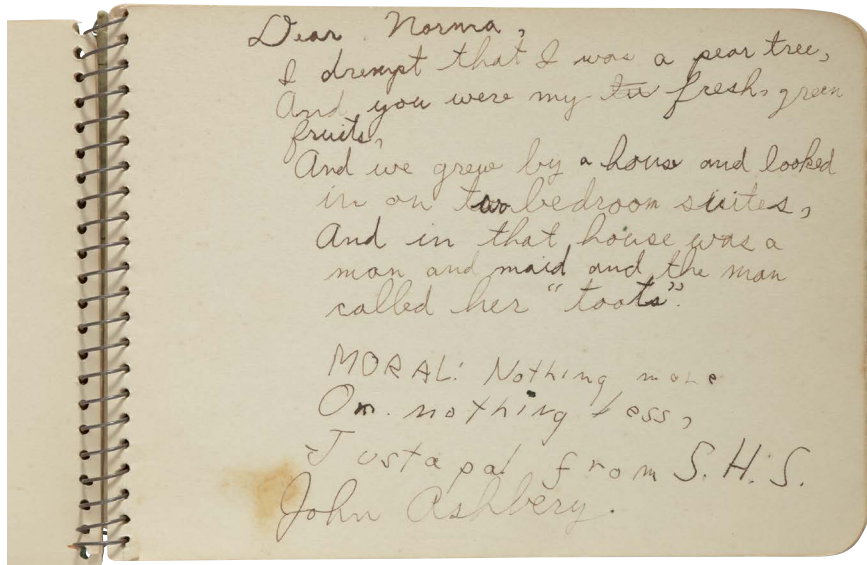 Dear Norma,
I drempt that I was a pear tree,
And you were my fresh, green
fruits,
And we grew by a house and looked
in on two bedroom suites,
And in that house was a
man and maid and the man
called her "toots".
MORAL: Nothing more
Or nothing less,
Just a pal from S.H.S.
John Ashbery.